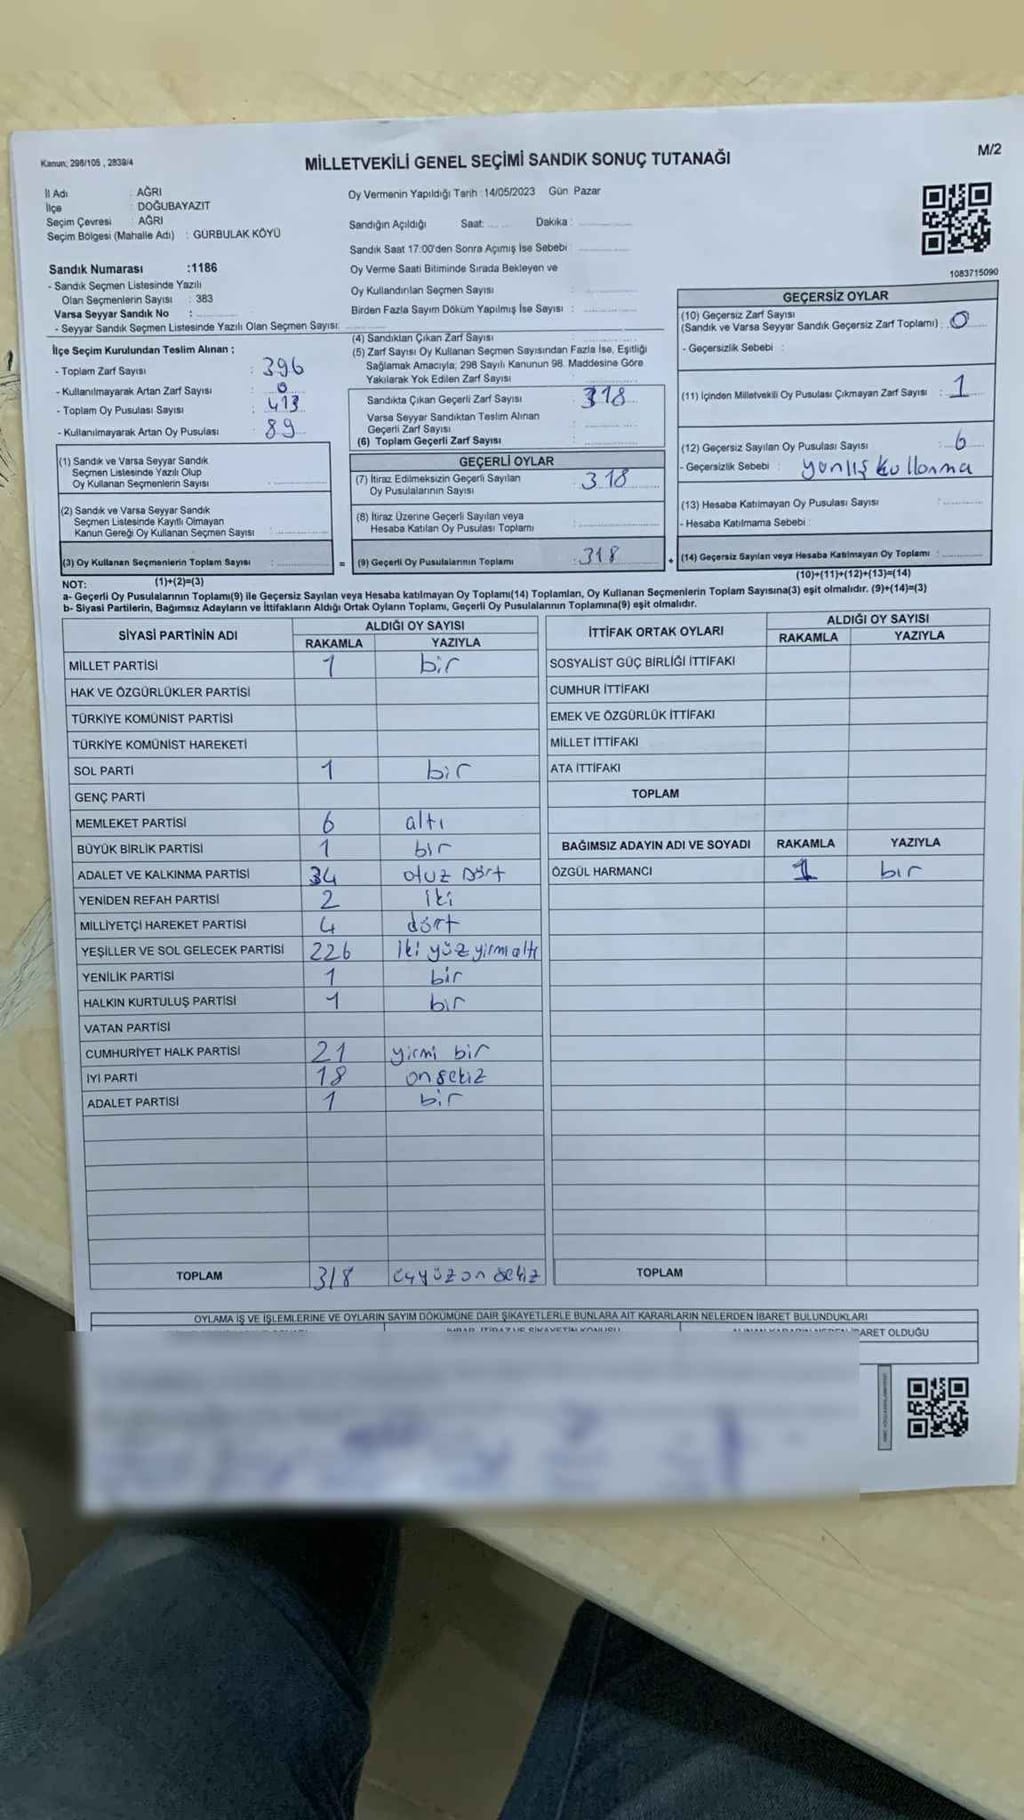 Kanun; 298/105 , 2839/4
MİLLETVEKİLİ GENEL SEÇİMİ SANDIK SONUÇ TUTANAĞI
M/2
İl Adı : AĞRI
İlçe : DOĞUBAYAZIT
Seçim Çevresi : AĞRI
Seçim Bölgesi (Mahalle Adı) : GÜRBULAK KÖYÜ
Oy Vermenin Yapıldığı Tarih :14/05/2023 Gün Pazar
Sandığın Açıldığı Saat: Dakika :
Sandık Saat 17:00'den Sonra Açımış İse Sebebi :
Oy Verme Saati Bitiminde Sırada Bekleyen ve
Oy Kullandırılan Seçmen Sayısı :
Birden Fazla Sayım Döküm Yapılmış İse Sayısı :
1083715090
Sandık Numarası :1186
- Sandık Seçmen Listesinde Yazılı
Olan Seçmenlerin Sayısı : 383
Varsa Seyyar Sandık No :
- Seyyar Sandık Seçmen Listesinde Yazılı Olan Seçmen Sayısı:
İlçe Seçim Kurulundan Teslim Alınan ;
- Toplam Zarf Sayısı : 396
- Kullanılmayarak Artan Zarf Sayısı : 0
- Toplam Oy Pusulası Sayısı : 413
- Kullanılmayarak Artan Oy Pusulası : 89
(1) Sandık ve Varsa Seyyar Sandık
Seçmen Listesinde Yazılı Olup
Oy Kullanan Seçmenlerin Sayısı :
(2) Sandık ve Varsa Seyyar Sandık
Seçmen Listesinde Kayıtlı Olmayan
Kanun Gereği Oy Kullanan Seçmen Sayısı :
(3) Oy Kullanan Seçmenlerin Toplam Sayısı :
(4) Sandıktan Çıkan Zarf Sayısı :
(5) Zarf Sayısı Oy Kullanan Seçmen Sayısından Fazla İse, Eşitliği
Sağlamak Amacıyla; 298 Sayılı Kanunun 98. Maddesine Göre
Yakılarak Yok Edilen Zarf Sayısı :
Sandıkta Çıkan Geçerli Zarf Sayısı : 318
Varsa Seyyar Sandıktan Teslim Alınan
Geçerli Zarf Sayısı :
(6) Toplam Geçerli Zarf Sayısı :
GEÇERLİ OYLAR
(7) İtiraz Edilmeksizin Geçerli Sayılan
Oy Pusulalarının Sayısı : 318
(8) İtiraz Üzerine Geçerli Sayılan veya
Hesaba Katılan Oy Pusulası Toplamı :
= (9) Geçerli Oy Pusulalarının Toplamı : 318
GEÇERSİZ OYLAR
(10) Geçersiz Zarf Sayısı
(Sandık ve Varsa Seyyar Sandık Geçersiz Zarf Toplamı) : 0
- Geçersizlik Sebebi :
(11) İçinden Milletvekili Oy Pusulası Çıkmayan Zarf Sayısı : 1
(12) Geçersiz Sayılan Oy Pusulası Sayısı : 6
- Geçersizlik Sebebi : yanlış kullanma
(13) Hesaba Katılmayan Oy Pusulası Sayısı :
- Hesaba Katılmama Sebebi :
+ (14) Geçersiz Sayılan veya Hesaba Katılmayan Oy Toplamı :
NOT: (1)+(2)=(3) (10)+(11)+(12)+(13)=(14)
a- Geçerli Oy Pusulalarının Toplamı(9) ile Geçersiz Sayılan veya Hesaba katılmayan Oy Toplamı(14) Toplamları, Oy Kullanan Seçmenlerin Toplam Sayısına(3) eşit olmalıdır. (9)+(14)=(3)
b- Siyasi Partilerin, Bağımsız Adayların ve İttifakların Aldığı Ortak Oyların Toplamı, Geçerli Oy Pusulalarının Toplamına(9) eşit olmalıdır.
SİYASİ PARTİNİN ADI ALDIĞI OY SAYISI
RAKAMLA YAZIYLA
MİLLET PARTİSİ 1 bir
HAK VE ÖZGÜRLÜKLER PARTİSİ
TÜRKİYE KOMÜNİST PARTİSİ
TÜRKİYE KOMÜNİST HAREKETİ
SOL PARTİ 1 bir
GENÇ PARTİ
MEMLEKET PARTİSİ 6 altı
BÜYÜK BİRLİK PARTİSİ 1 bir
ADALET VE KALKINMA PARTİSİ 34 otuz Dört
YENİDEN REFAH PARTİSİ 2 iki
MİLLİYETÇİ HAREKET PARTİSİ 4 dört
YEŞİLLER VE SOL GELECEK PARTİSİ 226 iki yüz yirmi altı
YENİLİK PARTİSİ 1 bir
HALKIN KURTULUŞ PARTİSİ 1 bir
VATAN PARTİSİ
CUMHURİYET HALK PARTİSİ 21 yirmi bir
İYİ PARTİ 18 on sekiz
ADALET PARTİSİ 1 bir
TOPLAM 318 üçyüz on sekiz
İTTİFAK ORTAK OYLARI ALDIĞI OY SAYISI
RAKAMLA YAZIYLA
SOSYALİST GÜÇ BİRLİĞİ İTTİFAKI
CUMHUR İTTİFAKI
EMEK VE ÖZGÜRLÜK İTTİFAKI
MİLLET İTTİFAKI
ATA İTTİFAKI
TOPLAM
BAĞIMSIZ ADAYIN ADI VE SOYADI RAKAMLA YAZIYLA
ÖZGÜL HARMANCI 1 bir
TOPLAM
OYLAMA İŞ VE İŞLEMLERİNE VE OYLARIN SAYIM DÖKÜMÜNE DAİR ŞİKAYETLERLE BUNLARA AİT KARARLARIN NELERDEN İBARET BULUNDUKLARI
İBARET OLDUĞU